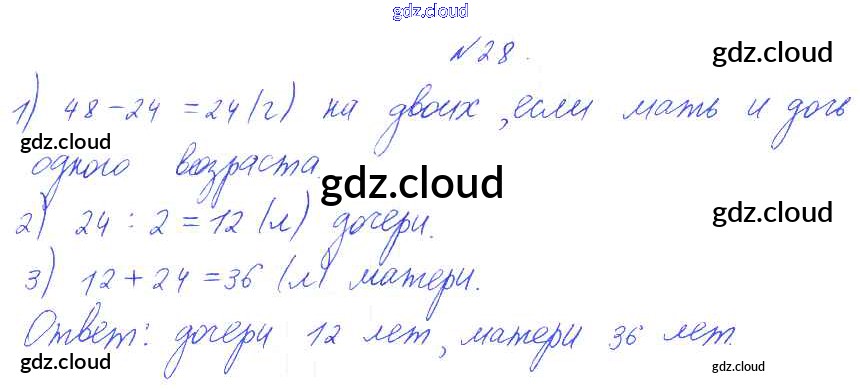 gdz.cloud
№28.
gdz.cloud
1) 48-24 =24(г) на двоих, если мать и дочь
gdz.cloud
gdz.cloud
одного возраста.
gdz.cloud
gdz.cloud
2) 24 : 2 = 12 (л) дочери.
3) 12+24=36 (л) матери.
Ответ: дочери 12 лет, матери 36 лет.
gdz.cloud
gdz.cloud